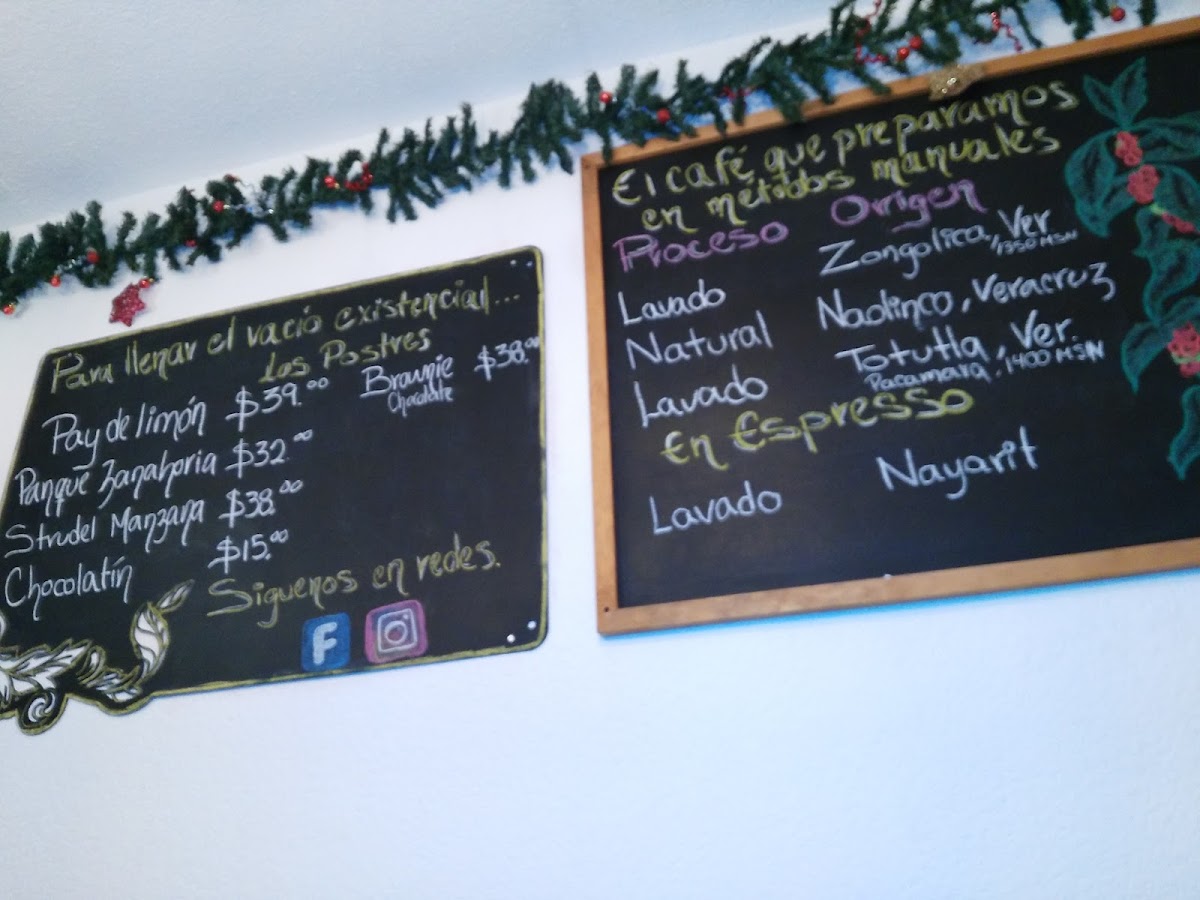 Para llenar el vacío existencial...
Los Postres
Pay de limón $39.00 Brownie $38.00
Chocolate
Panqué Zanahoria $32.00
Strudel Manzana $38.00
Chocolatín $15.00
Siguenos en redes.
F
El café que preparamos
en métodos manuales
Proceso Origen
Lavado Zongolica, Ver
1350 MSN
Natural Naolinco, Veracruz
Lavado Totutla, Ver.
Pacamara, 1400 MSN
En Espresso
Lavado Nayarit